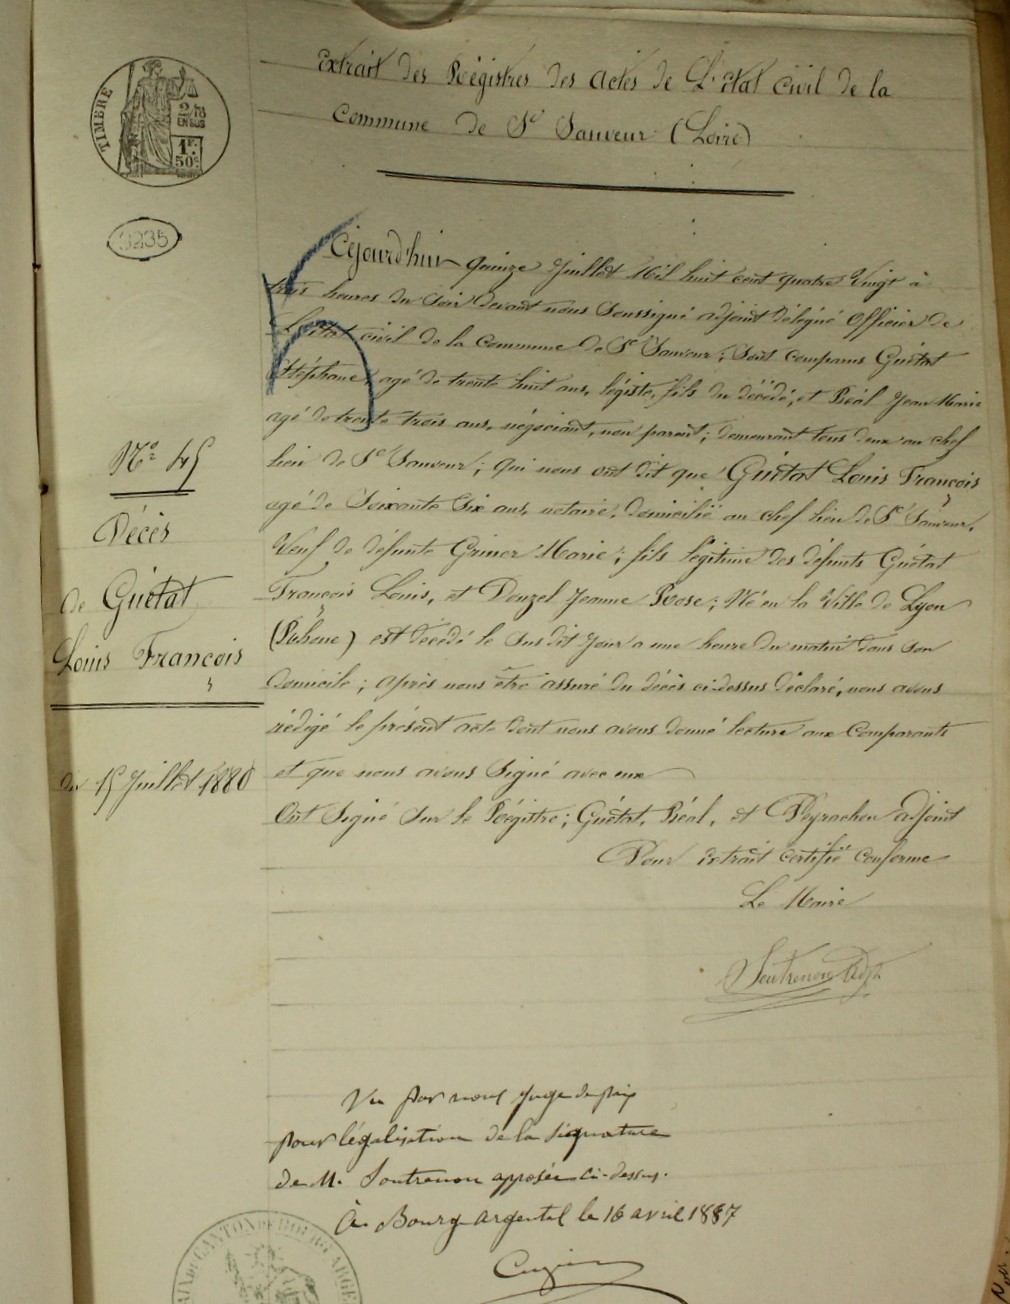 Extrait des Régistres des actes de L'état civil de la
Commune de St Sauveur (Loire)
TIMBRE
2/10
EN SUS
1F.
50c
3235
Cejourd'hui quinze Juillet Mil huit cent quatre Vingt à
trois heures du Soir devant nous Soussigné adjoint délégué officier de
L'état civil de la Commune de St Sauveur; Sont comparus Guétat
Stéphane, agé de trente huit ans, légiste, fils du décédé, et Réal Jean Marie
agé de trente trois ans, négociant, non parent; demeurant tous deux au chef
lieu de St Sauveur; qui nous ont dit que Guétat Louis François
agé de Soixante Six ans, notaire, domicilié au chef lieu de St Sauveur,
Veuf de défunte Marie; fils légitime des défunts Guétat
François Louis, et Donzel Jeanne Rose; Né en la Ville de Lyon
(Rhône) est décédé le Susdit Jour a une heure du matin dans son
domicile; après nous être assuré du décès ci-dessus déclaré, nous avons
rédigé le présent acte dont nous avons donné lecture aux Comparants
et que nous avons Signé avec eux
Ont Signé Sur le Régitre; Guétat, Réal, et Peyrachon adjoint
Pour extrait certifié conforme
Le Maire
Soutrenon adjt
No 45
Décès
de Guétat
Louis François
du 15 Juillet 1880
Vu par nous Juge de paix
pour légalisation de la signature
de M. Soutrenon apposée ci-dessus.
à Bourg-argental le 16 avril 1887
CANTON DE BOURG ARGE